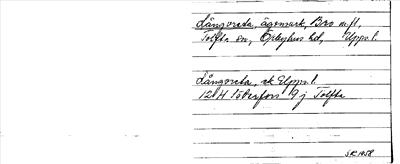 Långsreta, ägomark, Bro m fl,
Tolfta sn, Örbyhus hd, Upps. l.
Långsreta, sk Upps. l.
12 H Söderfors 9 j Tolfta
SK 1958